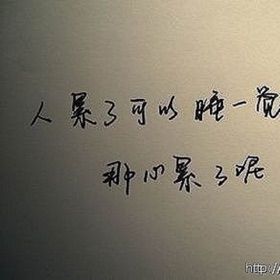 人累了可以睡一觉
那心累了呢
http://